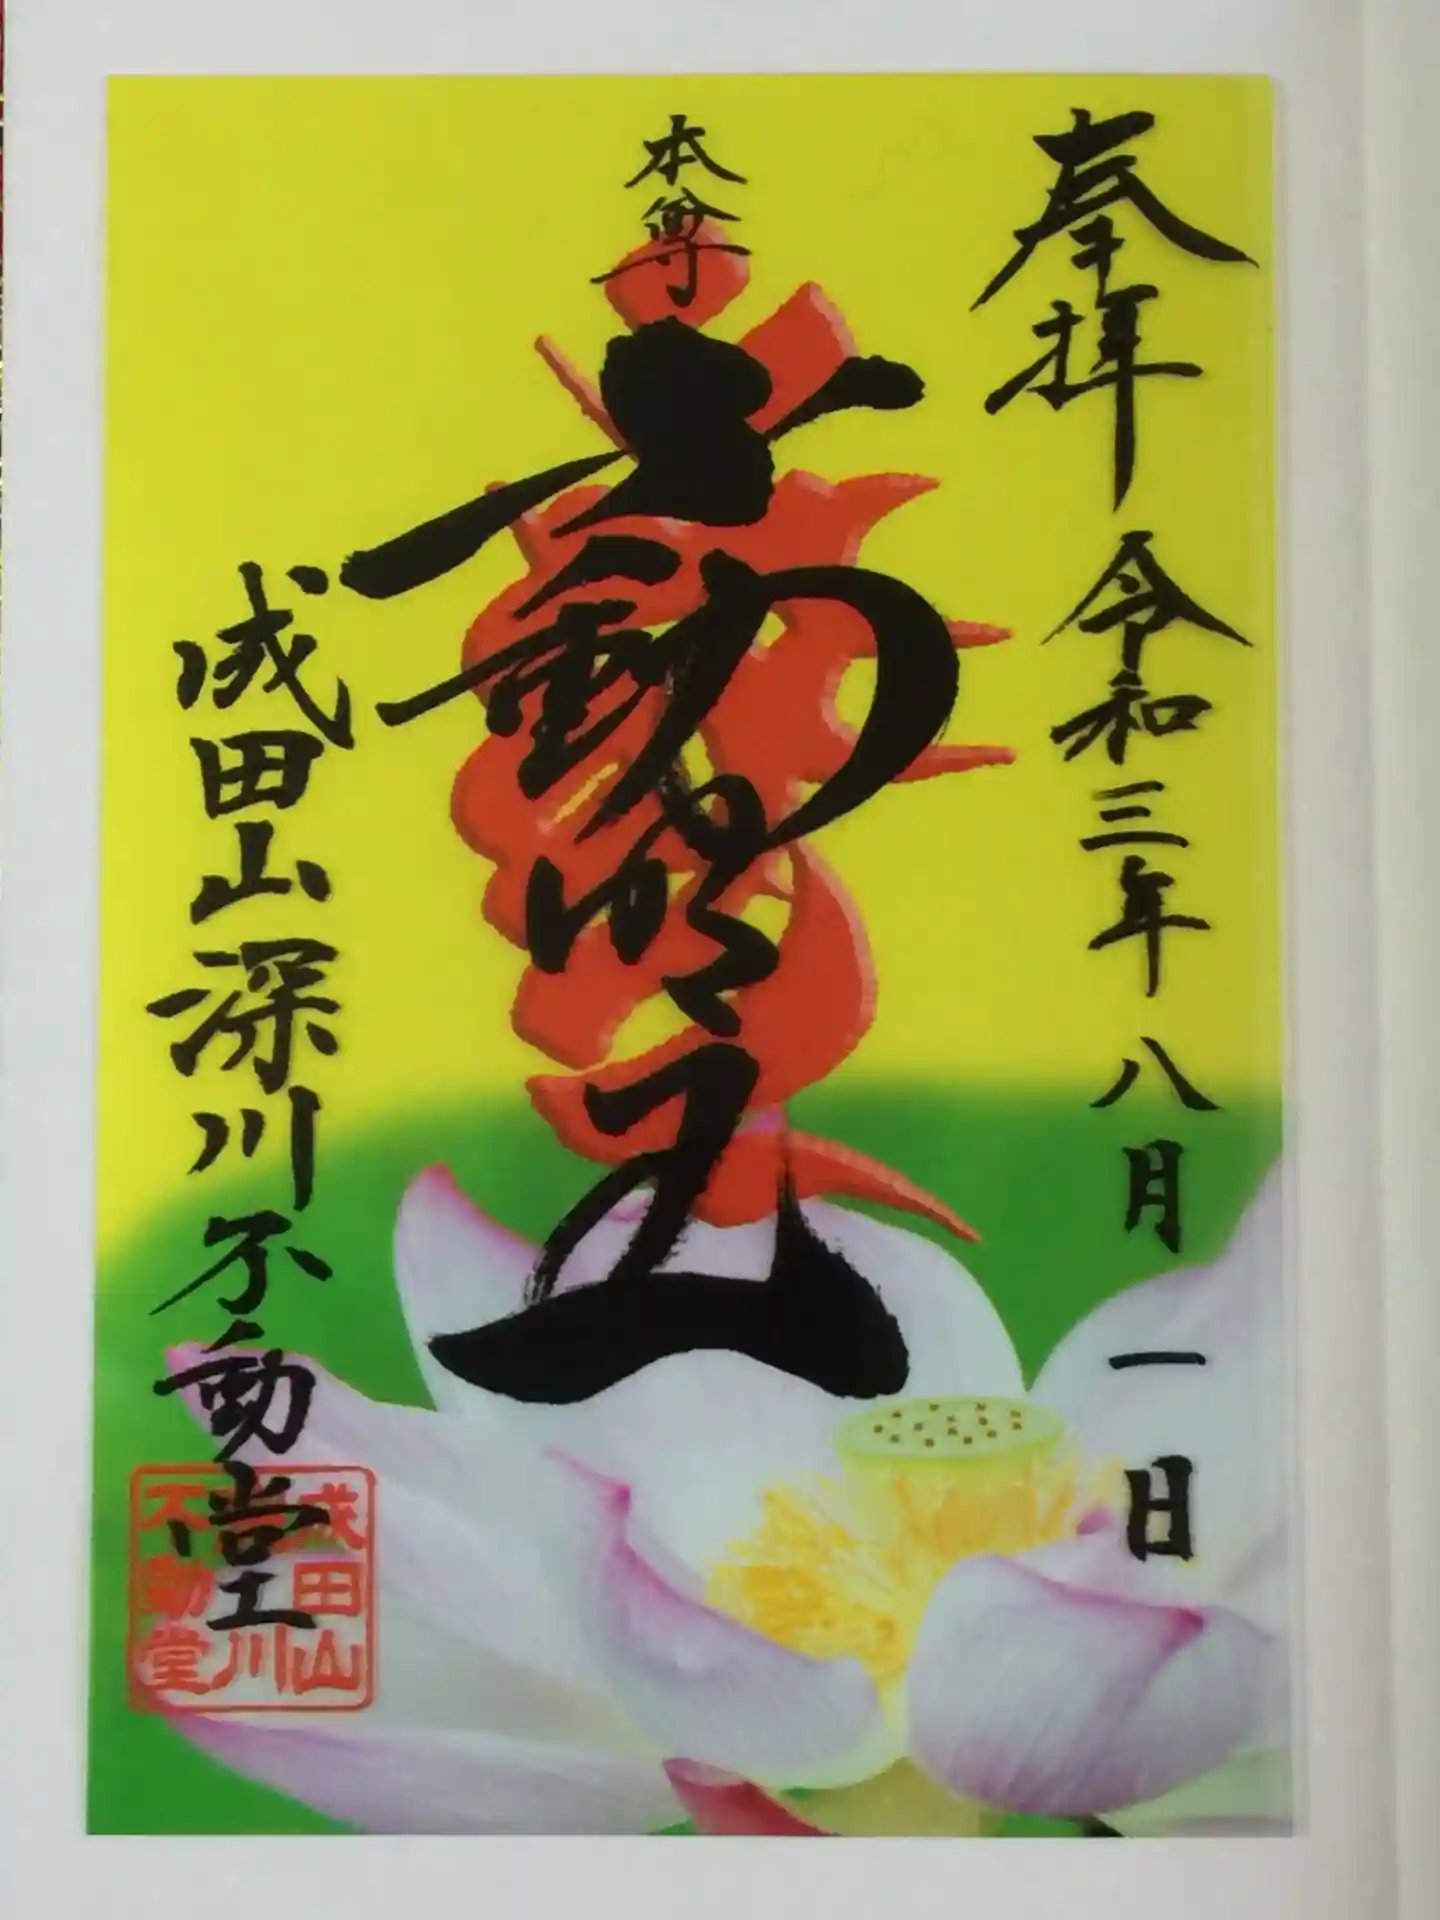 奉拝 令和三年八月一日
本尊
不動明王
成田山深川不動堂
成田山
川
不動堂